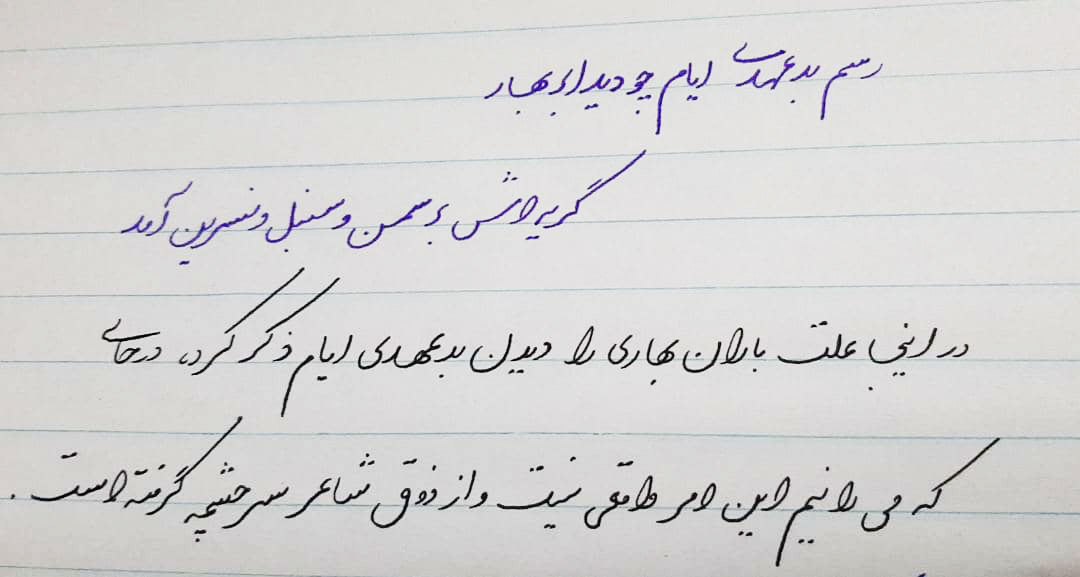 رسم بدعهدی ایام چو دید ابر بهار
گریه‌اش بر سمن و سنبل و نسرین آمد
در اینجا علت باران بهاری را دیدن بدعهدی ایام ذکر کرد، درحالی
که می دانیم این امر واقعی نیست و از ذوق شاعر سرچشمه گرفته است.